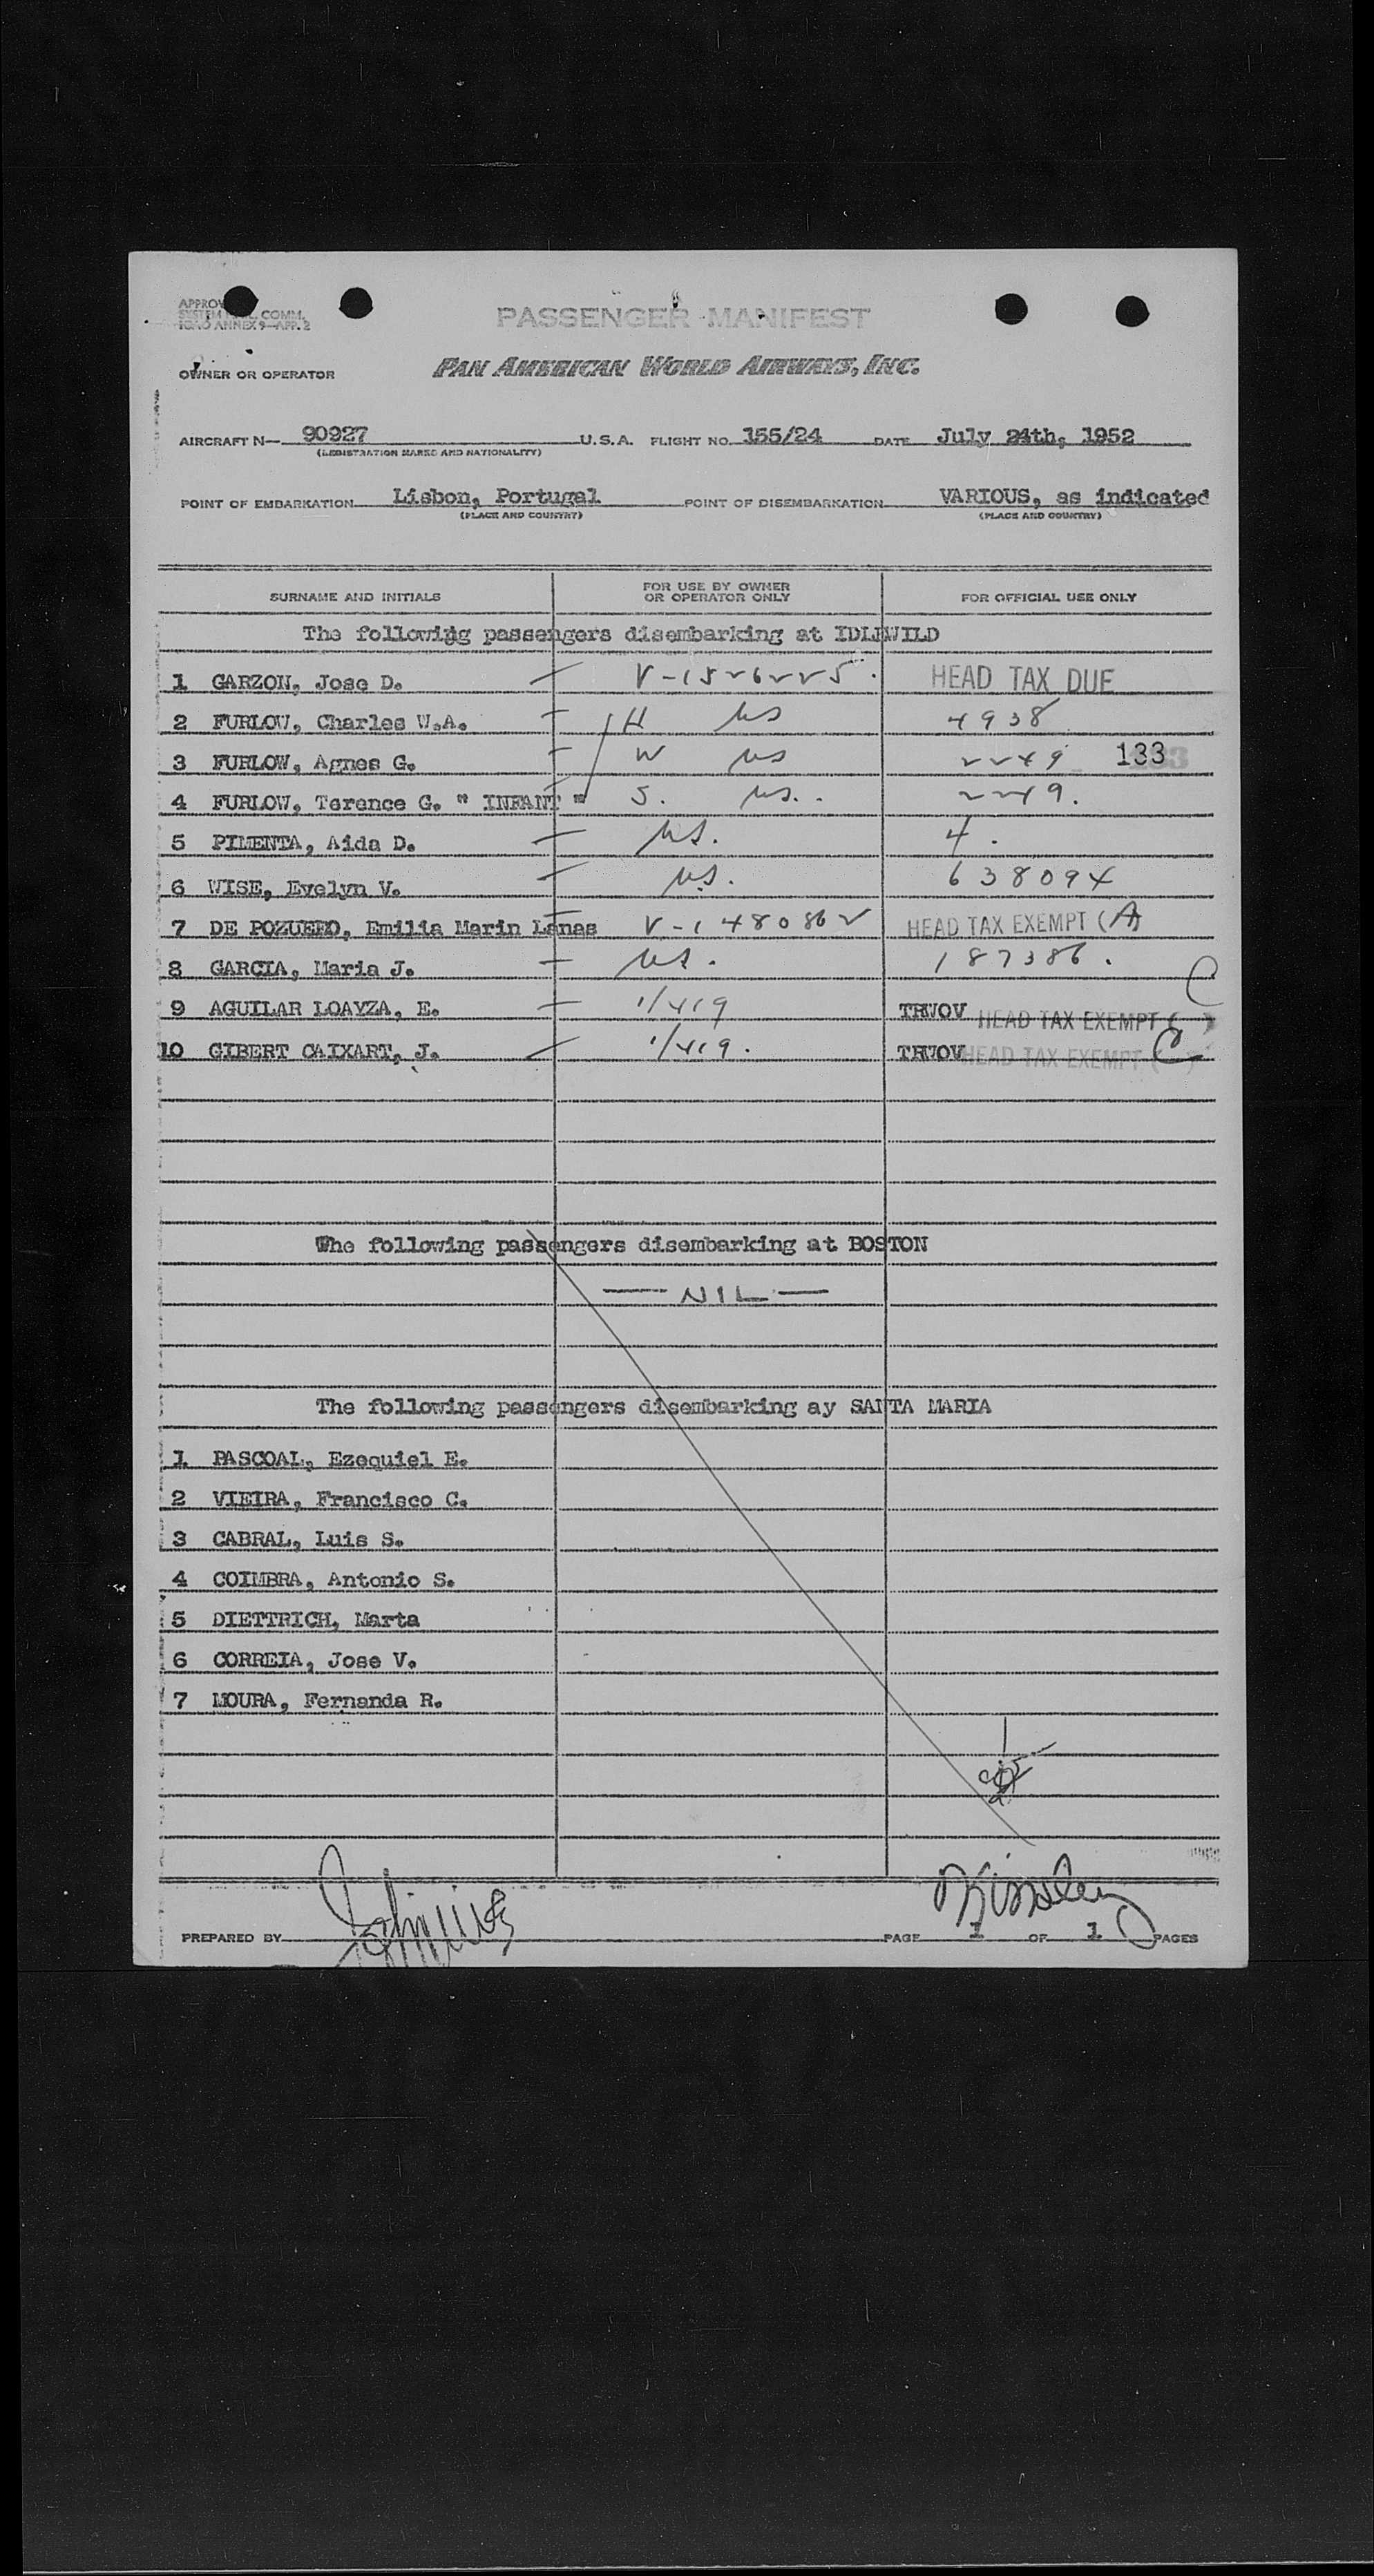 PASSENGER MANIFEST
ICAO ANNEX 9—APP. 2
OWNER OR OPERATOR PAN AMERICAN WORLD AIRWAYS, INC.
AIRCRAFT N— 90927 U.S.A. FLIGHT NO. 155/24 DATE July 24th, 1952
(REGISTRATION MARKS AND NATIONALITY)
POINT OF EMBARKATION Lisbon, Portugal POINT OF DISEMBARKATION VARIOUS, as indicated
(PLACE AND COUNTRY) (PLACE AND COUNTRY)
SURNAME AND INITIALS FOR USE BY OWNER OR OPERATOR ONLY FOR OFFICIAL USE ONLY
The following passengers disembarking at IDLEWILD
1 GARZON, Jose D. — V-1526225. HEAD TAX DUE
2 FURLOW, Charles W.A. — H US 4938
3 FURLOW, Agnes G. — W US 2249 133
4 FURLOW, Terence G. " INFANT " S. US. 2249.
5 PIMENTA, Aida D. — US. 4.
6 WISE, Evelyn V. — US. 638094
7 DE POZUELO, Emilia Marin Lanas V-1480862 HEAD TAX EXEMPT (A)
8 GARCIA, Maria J. — US. 187386.
9 AGUILAR LOAYZA, E. — 1/419 TRWOV HEAD TAX EXEMPT ( ) C
10 GIBERT CAIXART, J. — 1/419. TRWOV HEAD TAX EXEMPT (C)
The following passengers disembarking at BOSTON
— NIL —
The following passengers disembarking ay SANTA MARIA
1 PASCOAL, Ezequiel E.
2 VIEIRA, Francisco C.
3 CABRAL, Luis S.
4 COIMBRA, Antonio S.
5 DIETTRICH, Marta
6 CORREIA, Jose V.
7 MOURA, Fernanda R.
PREPARED BY PAGE 1 OF 1 PAGES